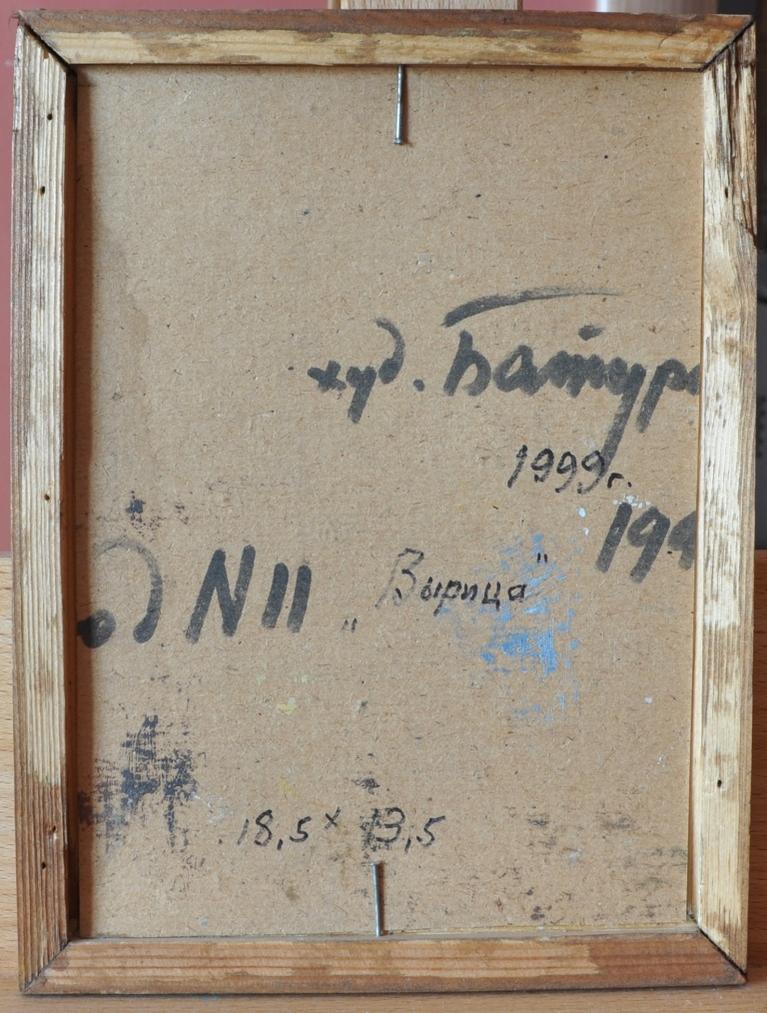 худ. Батур
1999г.
199
д N11 „Вырица"
18,5 x 13,5